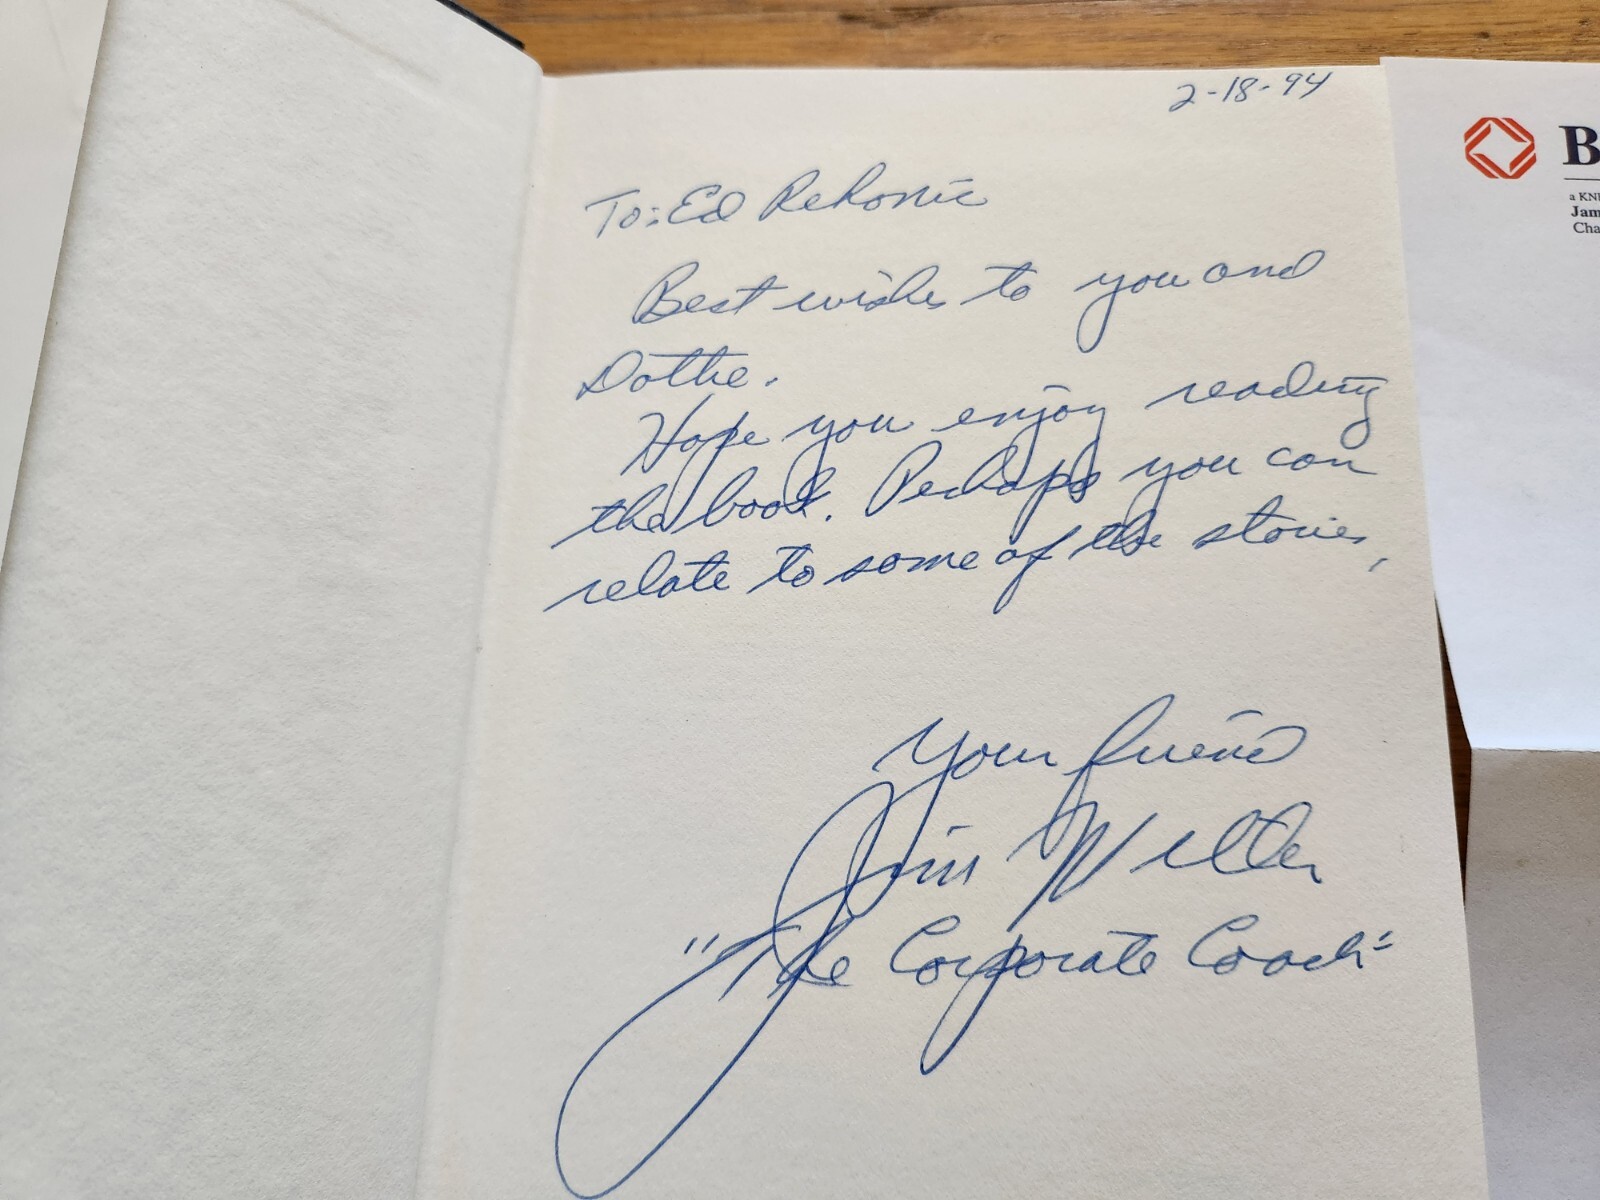 2-18-94
To: Ed Rekonic
Best wishes to you and
Dottie.
Hope you enjoy reading
the book. Perhaps you can
relate to some of the stories,
Your friend
Jim Miller
"The Corporate Coach"
B
a KN
Jam
Cha